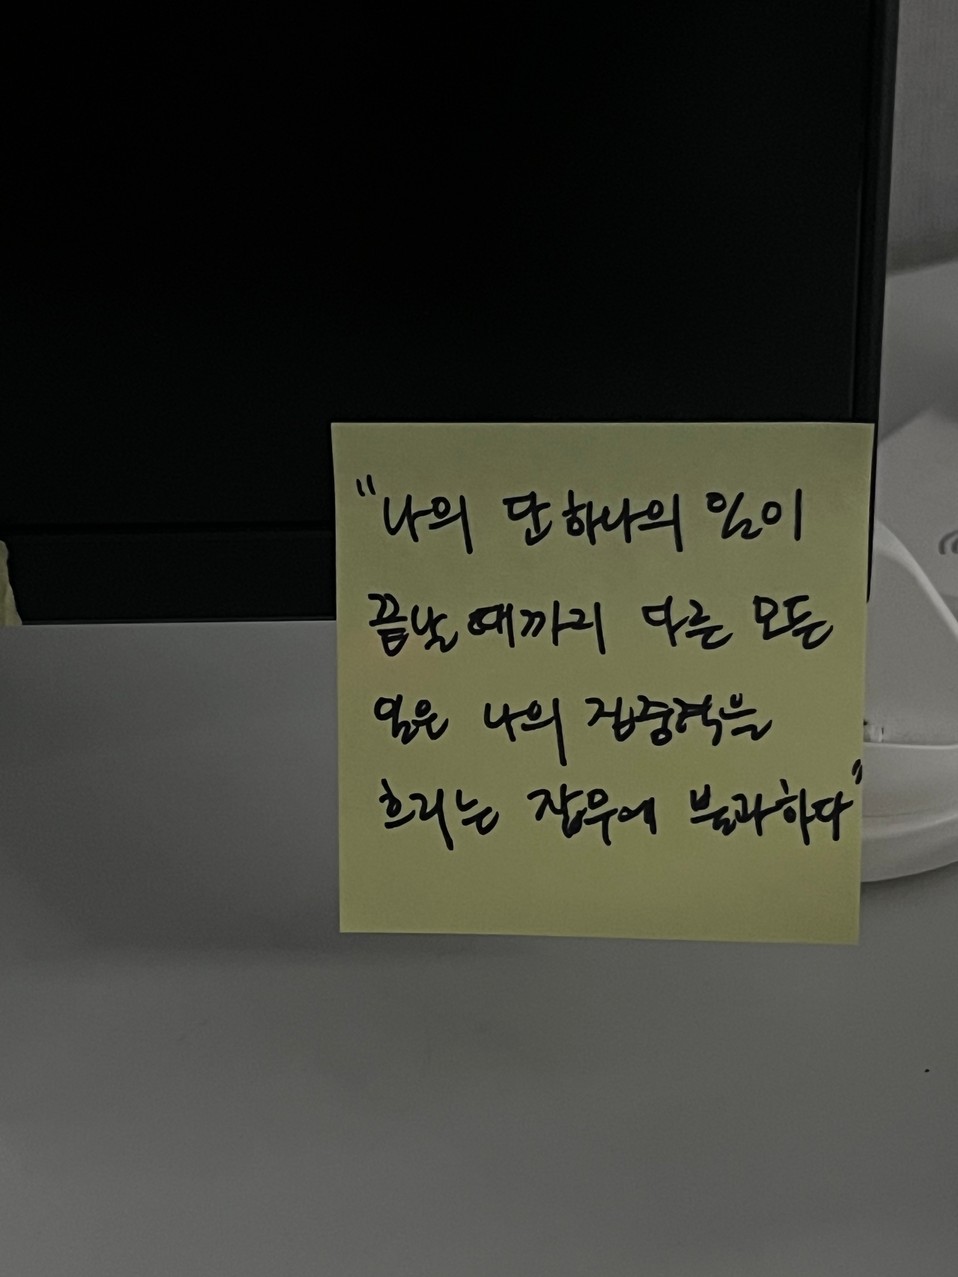 "나의 단 하나의 일이
끝날 때까지 다른 모든
일은 나의 집중력을
흐리는 잡무에 불과하다"